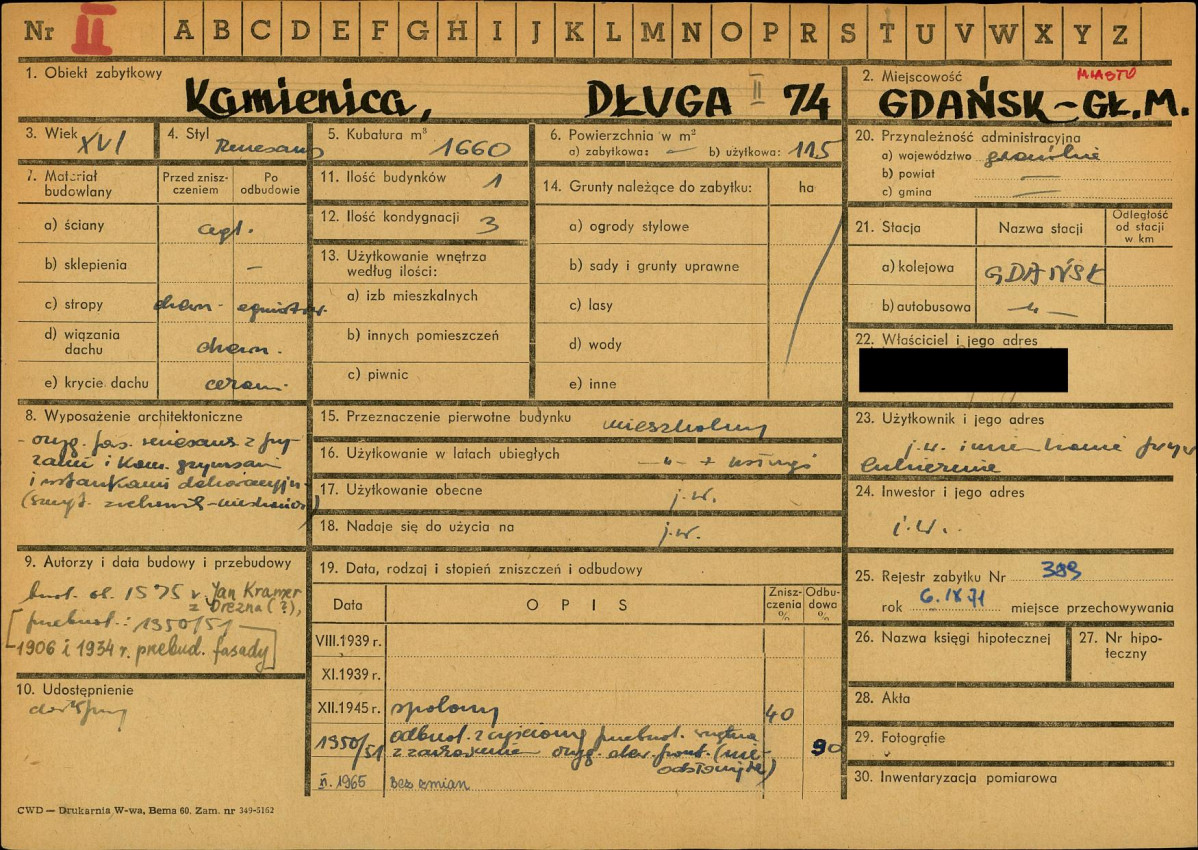 Nr II A B C D E F G H I J K L M N O P R S T U V W X Y Z
1. Obiekt zabytkowy
Kamienica, DŁUGA II 74
2. Miejscowość MIASTO
GDAŃSK-GŁ.M.
3. Wiek XVI
4. Styl Renesans
5. Kubatura m³ 1660
6. Powierzchnia w m²
a) zabytkowa: — b) użytkowa: 115
7. Materiał budowlany
Przed zniszczeniem
Po odbudowie
a) ściany cegł.
b) sklepienia —
c) stropy drewn - ogniotrw.
d) wiązania dachu drewn.
e) krycie dachu ceram.
8. Wyposażenie architektoniczne
- oryg. fas. renesans. z fry-
zami i kam. gzymsami
i
9. Autorzy i data budowy i przebudowy
bud. ok. 1575 r. Jan Kramer
z Drezna (?),
przebud.: 1950/51
1906 i 1934 r. przebud. fasady
10. Udostępnienie
dostępny
11. Ilość budynków 1
12. Ilość kondygnacji 3
13. Użytkowanie wnętrza
według ilości:
a) izb mieszkalnych
b) innych pomieszczeń
c) piwnic
14. Grunty należące do zabytku: ha
a) ogrody stylowe
b) sady i grunty uprawne
c) lasy
d) wody
e) inne
15. Przeznaczenie pierwotne budynku mieszkalny
16. Użytkowanie w latach ubiegłych —„— + usługi
17. Użytkowanie obecne j.w.
18. Nadaje się do użycia na j.w.
19. Data, rodzaj i stopień zniszczeń i odbudowy
Data OPIS Zniszczenia % Odbudowa %
VIII.1939 r.
XI.1939 r.
XII.1945 r. spalony 40
1950/51 odbud. z częściową przebud. wnętrza
z zachowaniem oryg. elew. front. (nie- 90
II. 1965 bez zmian
20. Przynależność administracyjna
a) województwo gdańskie
b) powiat —
c) gmina —
21. Stacja
Nazwa stacji
Odległość
od stacji
w km
a) kolejowa GDAŃSK
b) autobusowa —„—
22. Właściciel i jego adres
23. Użytkownik i jego adres
j.w. i
24. Inwestor i jego adres
j.w.
25. Rejestr zabytku Nr 389
rok 6.IX.71 miejsce przechowywania
26. Nazwa księgi hipotecznej
27. Nr hipo-
teczny
28. Akta
29. Fotografie
30. Inwentaryzacja pomiarowa
CWD — Drukarnia W-wa, Bema 60. Zam. nr 349-5162